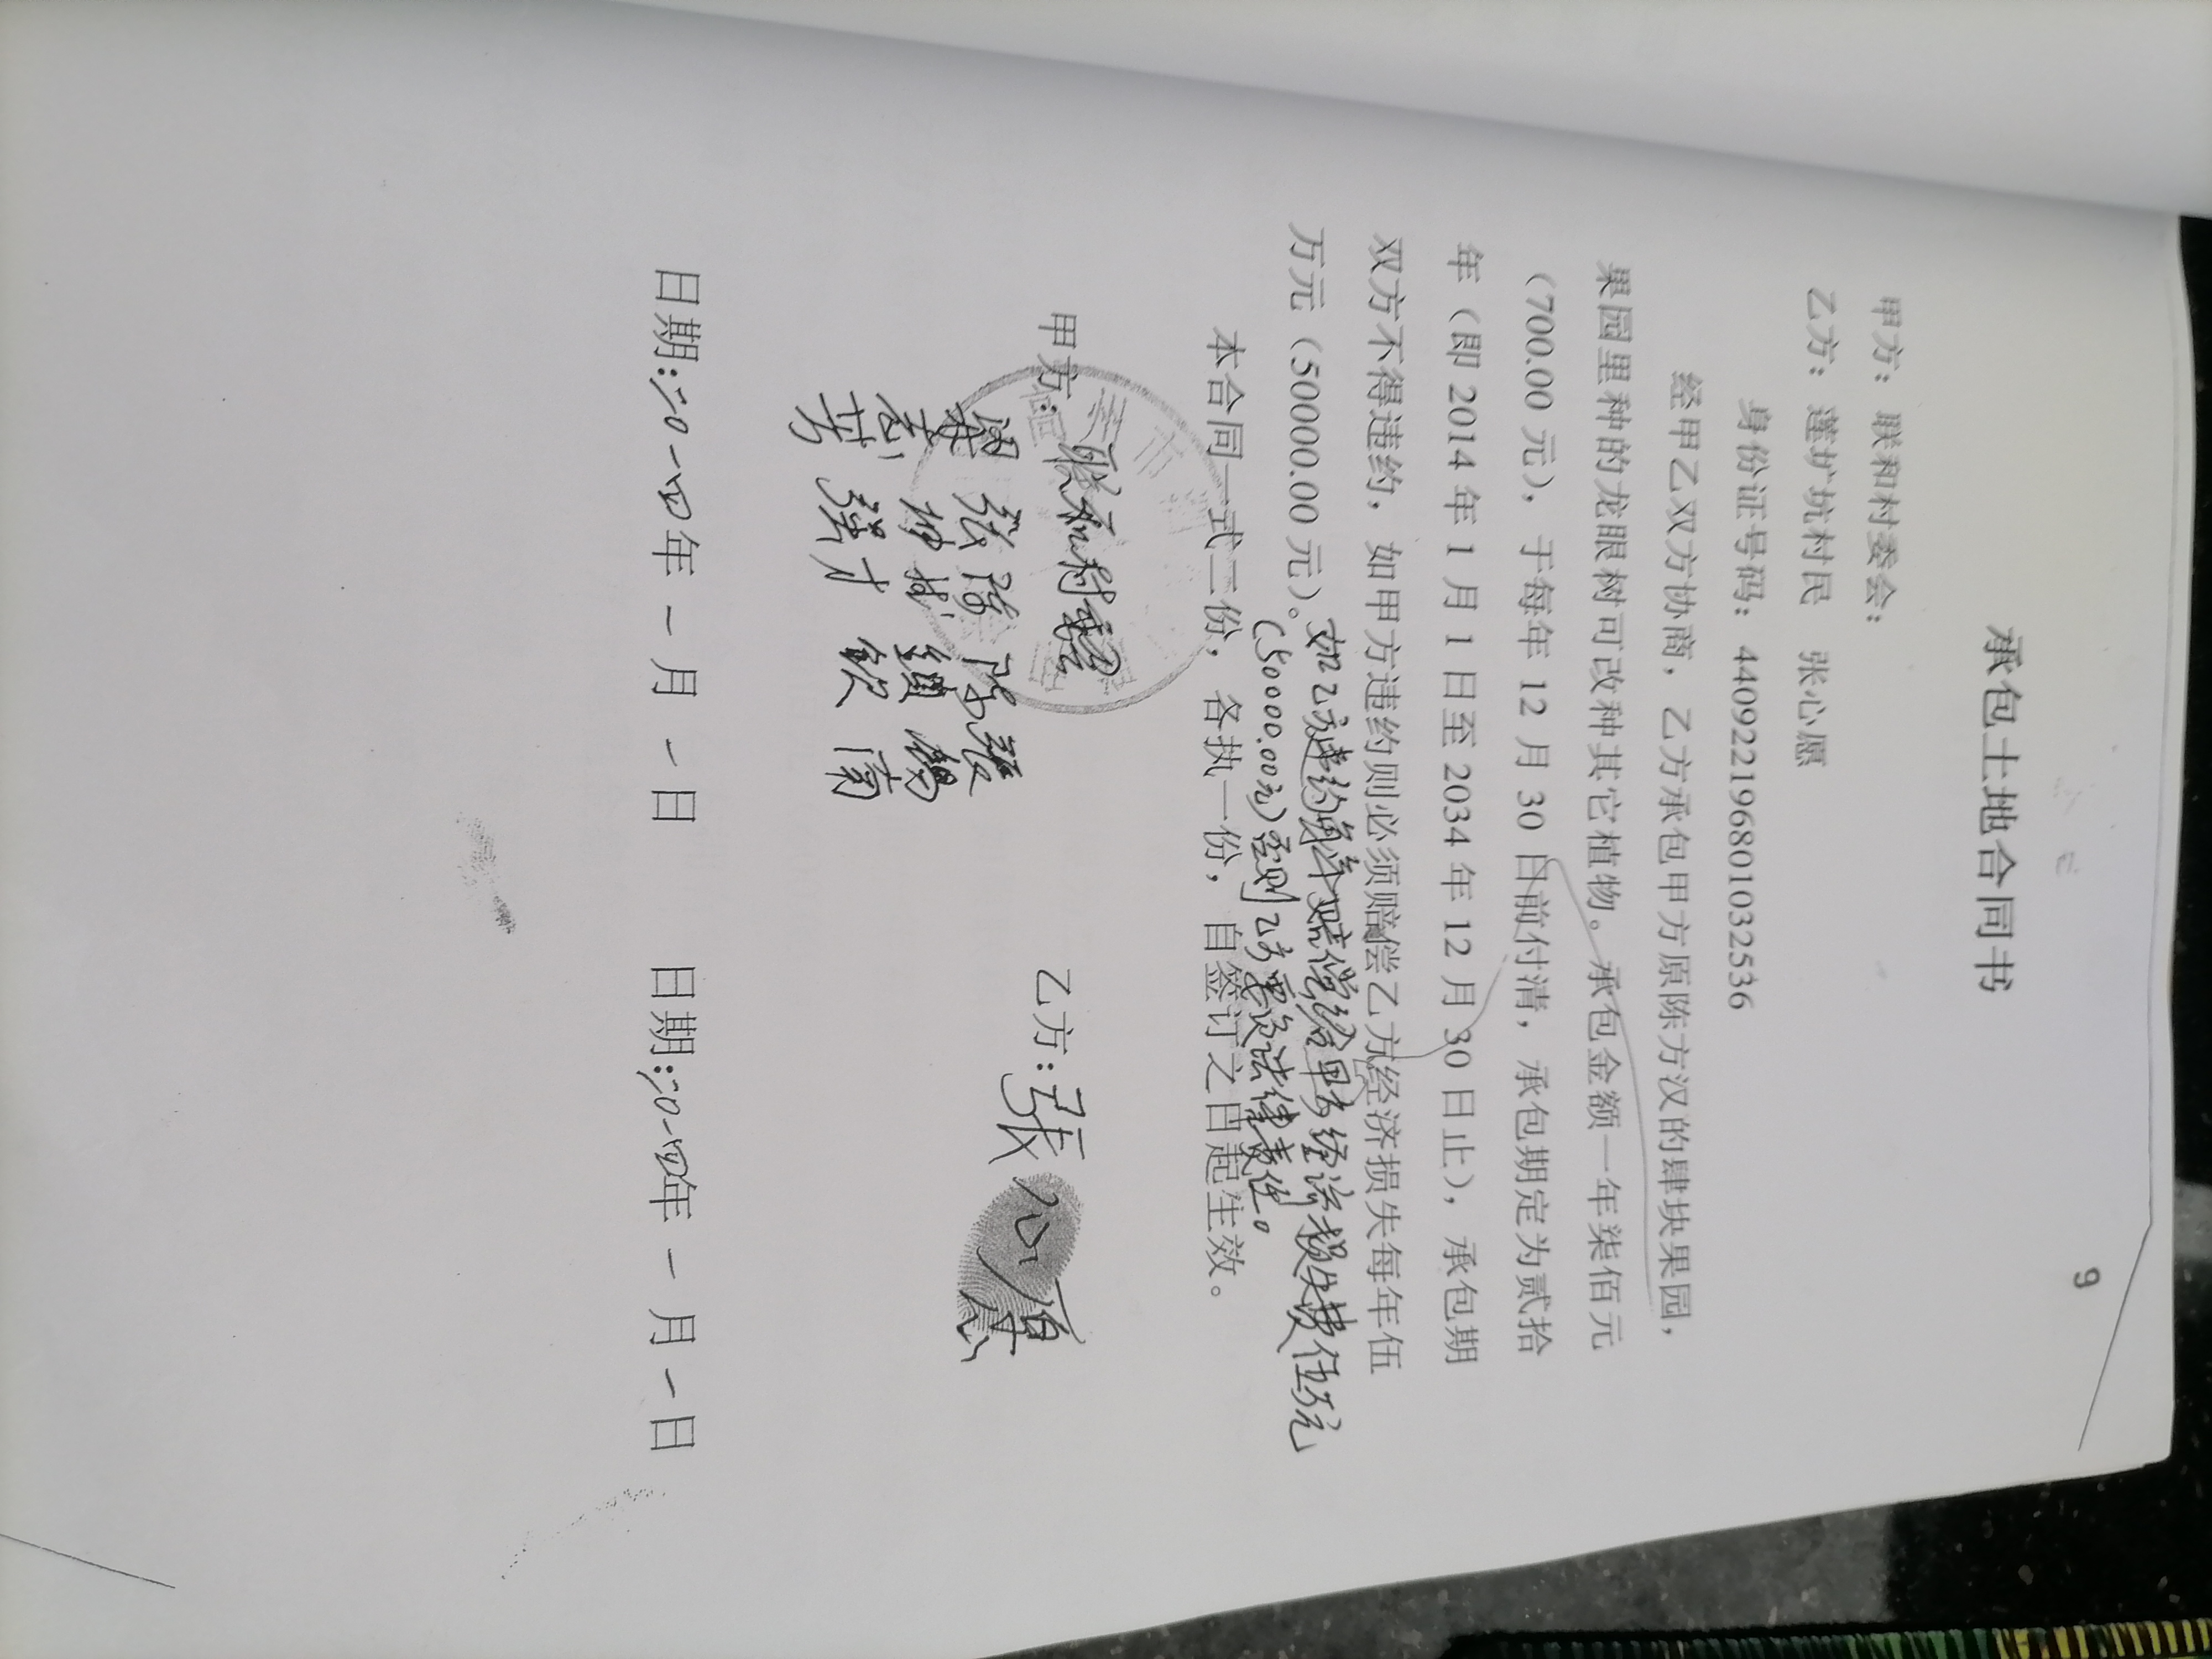 9
承包土地合同书
甲方：联和村委会：
乙方：莲扩坑村民 张心愿
身份证号码：440922196801032536
经甲乙双方协商，乙方承包甲方原陈方汉的肆块果园，
果园里种的龙眼树可改种其它植物。承包金额一年柒佰元
（700.00 元），于每年 12 月 30 日前付清，承包期定为贰拾
年（即 2014 年 1 月 1 日至 2034 年 12 月 30 日止），承包期
双方不得违约，如甲方违约则必须赔偿乙方经济损失每年伍
万元（50000.00 元）。如乙方违约每年要赔偿给甲方经济损失费伍万元
（50000.00元）否则乙方要负法律责任。
本合同一式二份，各执一份，自签订之日起生效。
甲方：联和村委会 乙方：张心愿
日期：20一四年一月一日 日期：20一四年一月一日